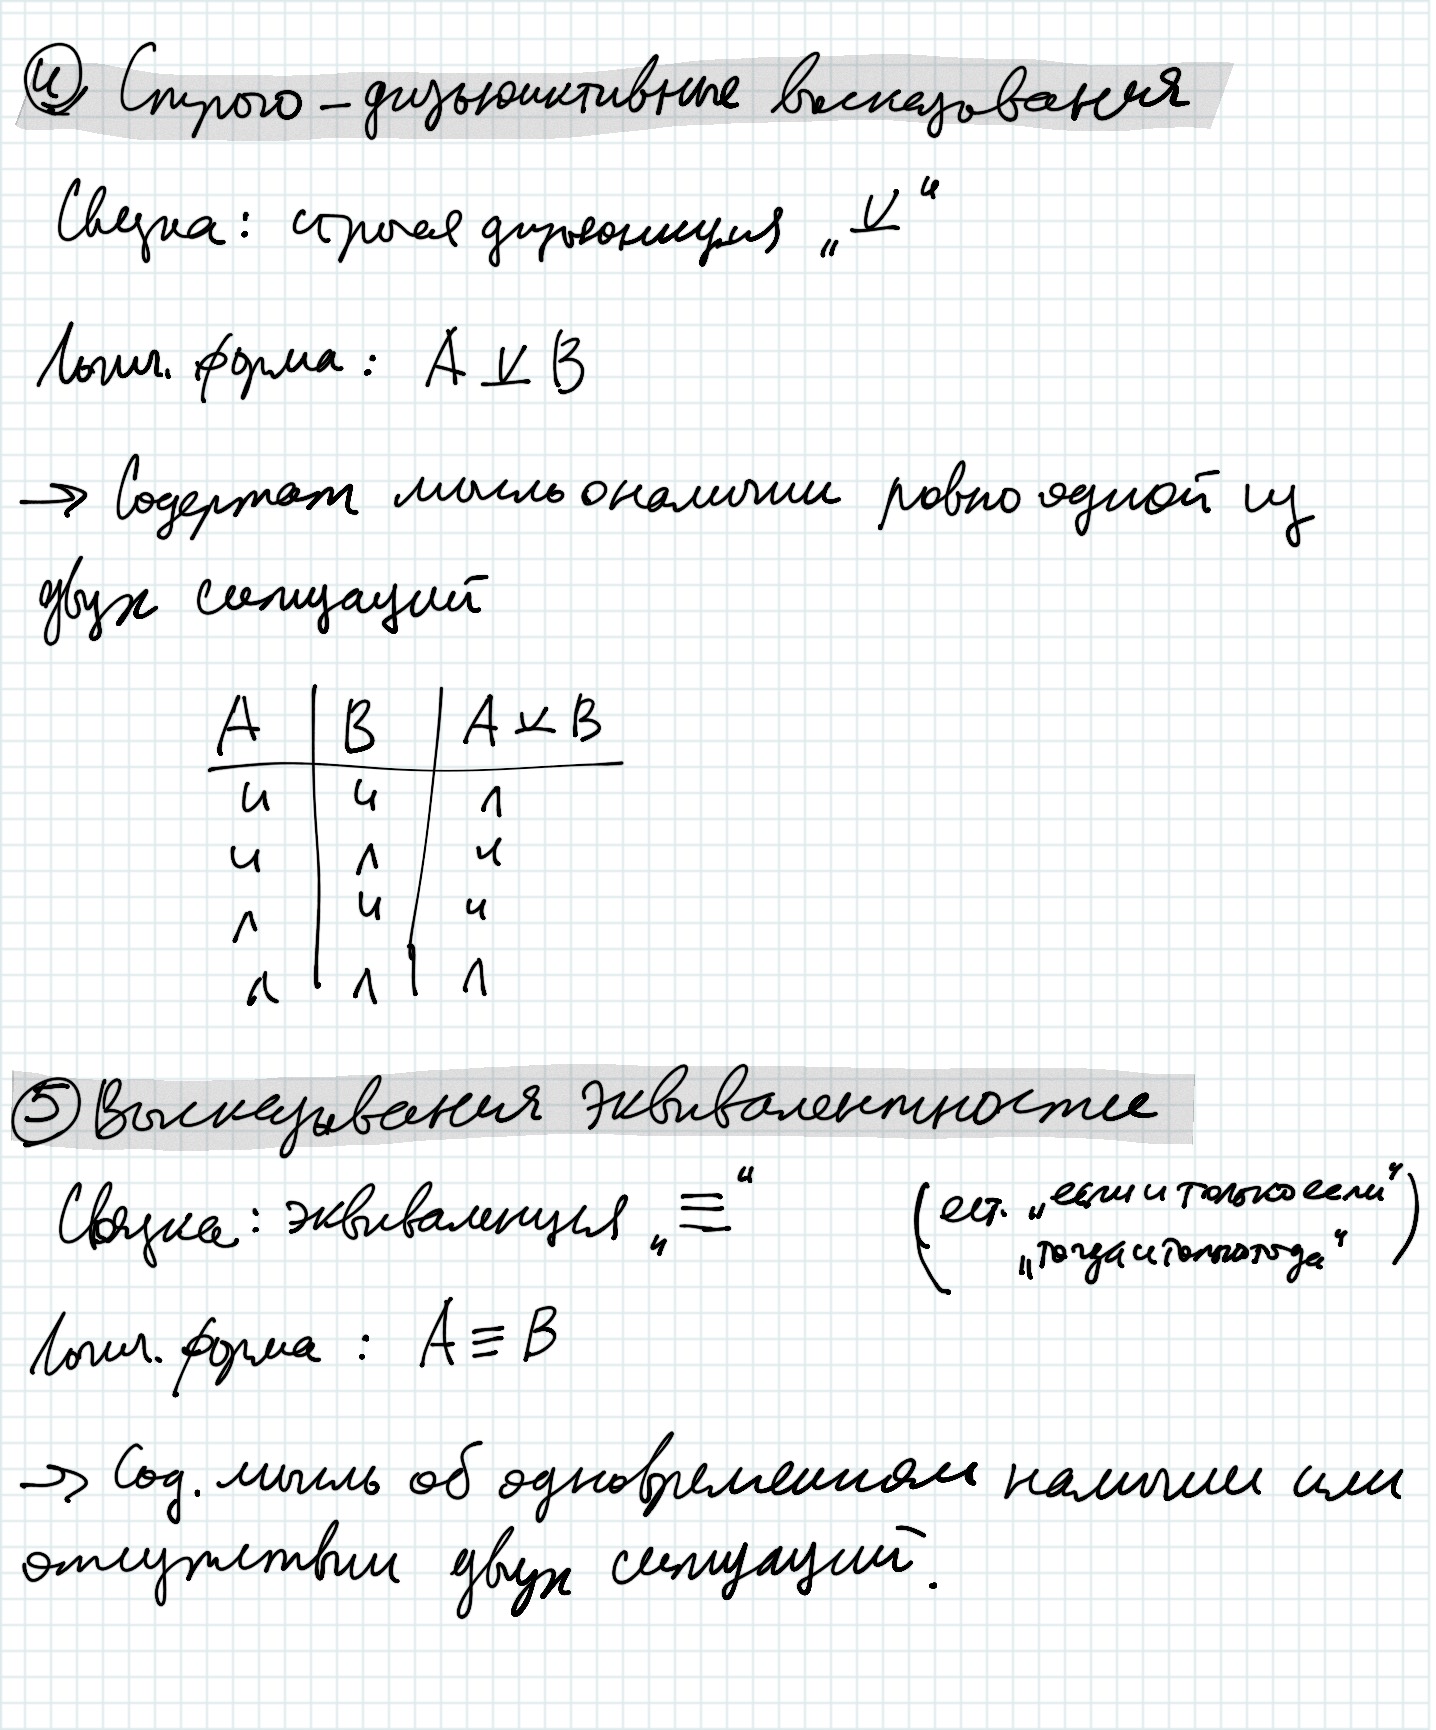 ④ Строго-дизъюнктивные высказывания
Связка: строгая дизъюнкция „⊻“
Логич. форма: A ⊻ B
→ Содержат мысль о наличии ровно одной из
двух ситуаций
A | B | A ⊻ B
и | и | л
и | л | и
л | и | и
л | л | л
⑤ Высказывания эквивалентности
Связка: эквиваленция „≡“ (ест. „если и только если“
„тогда и только тогда“)
Логич. форма: A ≡ B
→ Сод. мысль об одновременном наличии или
отсутствии двух ситуаций.